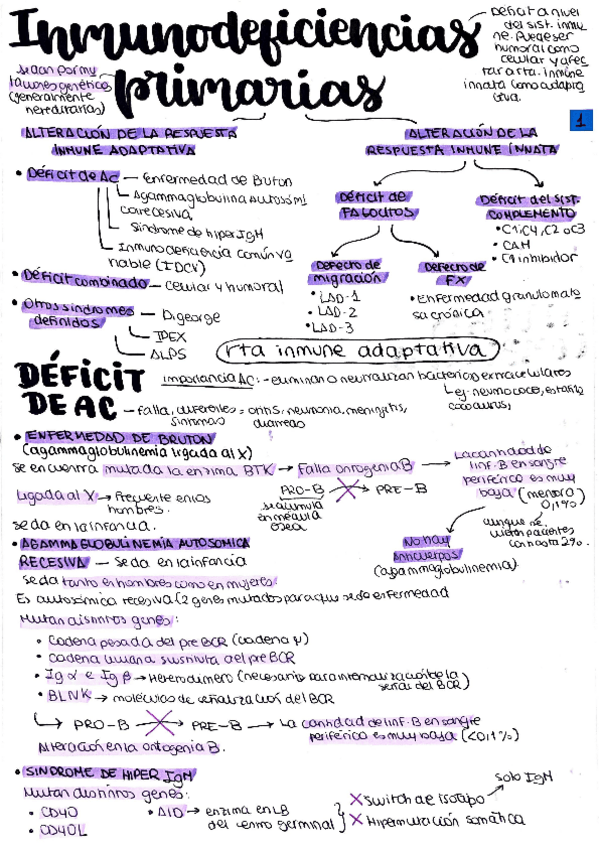 Inmunodeficiencias
primarias
Déficit a nivel
del sist. inmu
ne. Puede ser
humoral como
celular y afec
tar a rta. inmune
innata como adapta
tiva.
se dan por mu
taciones genéticas
(generalmente
hereditarias)
1
ALTERACIÓN DE LA RESPUESTA
INMUNE ADAPTATIVA
• Déficit de Ac — Enfermedad de Bruton
Agammaglobulina Autosómi
ca recesiva
Síndrome de hiper IgM
Inmunodeficiencia común va
riable (IDCV)
• Déficit combinado — Celular y humoral
• Otros síndromes
definidos — Digeorge
IPEX
ALPS
ALTERACIÓN DE LA
RESPUESTA INMUNE INNATA
Déficit de
FAGOCITOS
Defecto de
migración
• LAD-1
• LAD-2
• LAD-3
Defecto de
FX
• Enfermedad granulomato
sa crónica
Déficit del SIST.
COMPLEMENTO
• C1, C4, C2 o C3
• CAM
• C1 inhibidor
rta inmune adaptativa
DÉFICIT
DE AC
importancia AC: - eliminan o neutralizan bacterias extracelulares
ej: neumococo, estafilo
coco aureus,
— falla, diferentes = otitis, neumonia, meningitis,
síntomas diarreas
• ENFERMEDAD DE BRUTON
(agammaglobulinemia ligada al X)
se encuentra mutada la enzima BTK → Falla ontogenia B → La cantidad de
linf. B en sangre
periférica es muy
baja (menor a
0,1%)
Ligada al X → Frecuente en los
hombres.
PRO-B X→ PRE-B
se acumula
en médula
ósea
se da en la infancia.
aunque se
vieron pacientes
con hasta 2%.
No hay
Anticuerpos
(agammaglobulinemia)
• AGAMMAGLOBULINEMIA AUTOSOMICA
RECESIVA — Se da en la infancia
se da tanto en hombres como en mujeres
Es autosómica recesiva (2 genes mutados para que se de enfermedad
Mutan distintos genes:
• Cadena pesada del pre BCR (cadena μ)
• cadena liviana sustituta del pre BCR
• Ig α e Ig β → Heterodimero (necesario para internalización de la
señal del BCR)
• BLNK → moléculas de señalización del BCR
↳ PRO-B X→ PRE-B → La cantidad de linf. B en sangre
periférica es muy baja (<0,1%)
Alteración en la ontogenia B.
• SINDROME DE HIPER IgM
Mutan distintos genes:
• CD40 • AID → enzima en LB
• CD40L del centro germinal
X Switch de isotipo → solo IgM
X Hipermutación somática